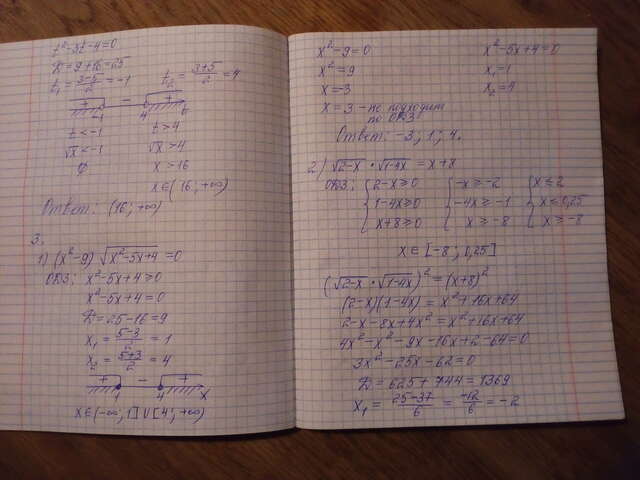 t²-3t-4=0
D=9+16=25
t₁=(3-5)/2=-1 t₂=(3+5)/2=4
+ - +
-1 4 t
t<-1 t>4
√x<-1 √x>4
∅ x>16
x∈(16;+∞)
Ответ: (16;+∞)
3.
1) (x²-9)√(x²-5x+4)=0
ОДЗ: x²-5x+4≥0
x²-5x+4=0
D=25-16=9
x₁=(5-3)/2=1
x₂=(5+3)/2=4
+ - +
1 4 x
x∈(-∞;1]∪[4;+∞)
x²-9=0 x²-5x+4=0
x²=9 x₁=1
x=-3 x₂=4
x=3 - не подходит
по ОДЗ
Ответ: -3; 1; 4.
2) √(2-x)·√(1-4x)=x+8
ОДЗ: {2-x≥0 {-x≥-2 {x≤2
1-4x≥0 -4x≥-1 x≤0,25
x+8≥0 x≥-8 x≥-8
x∈[-8;0,25]
(√(2-x)·√(1-4x))²=(x+8)²
(2-x)(1-4x)=x²+16x+64
2-x-8x+4x²=x²+16x+64
4x²-x²-9x-16x+2-64=0
3x²-25x-62=0
D=625+744=1369
x₁=(25-37)/6=-12/6=-2